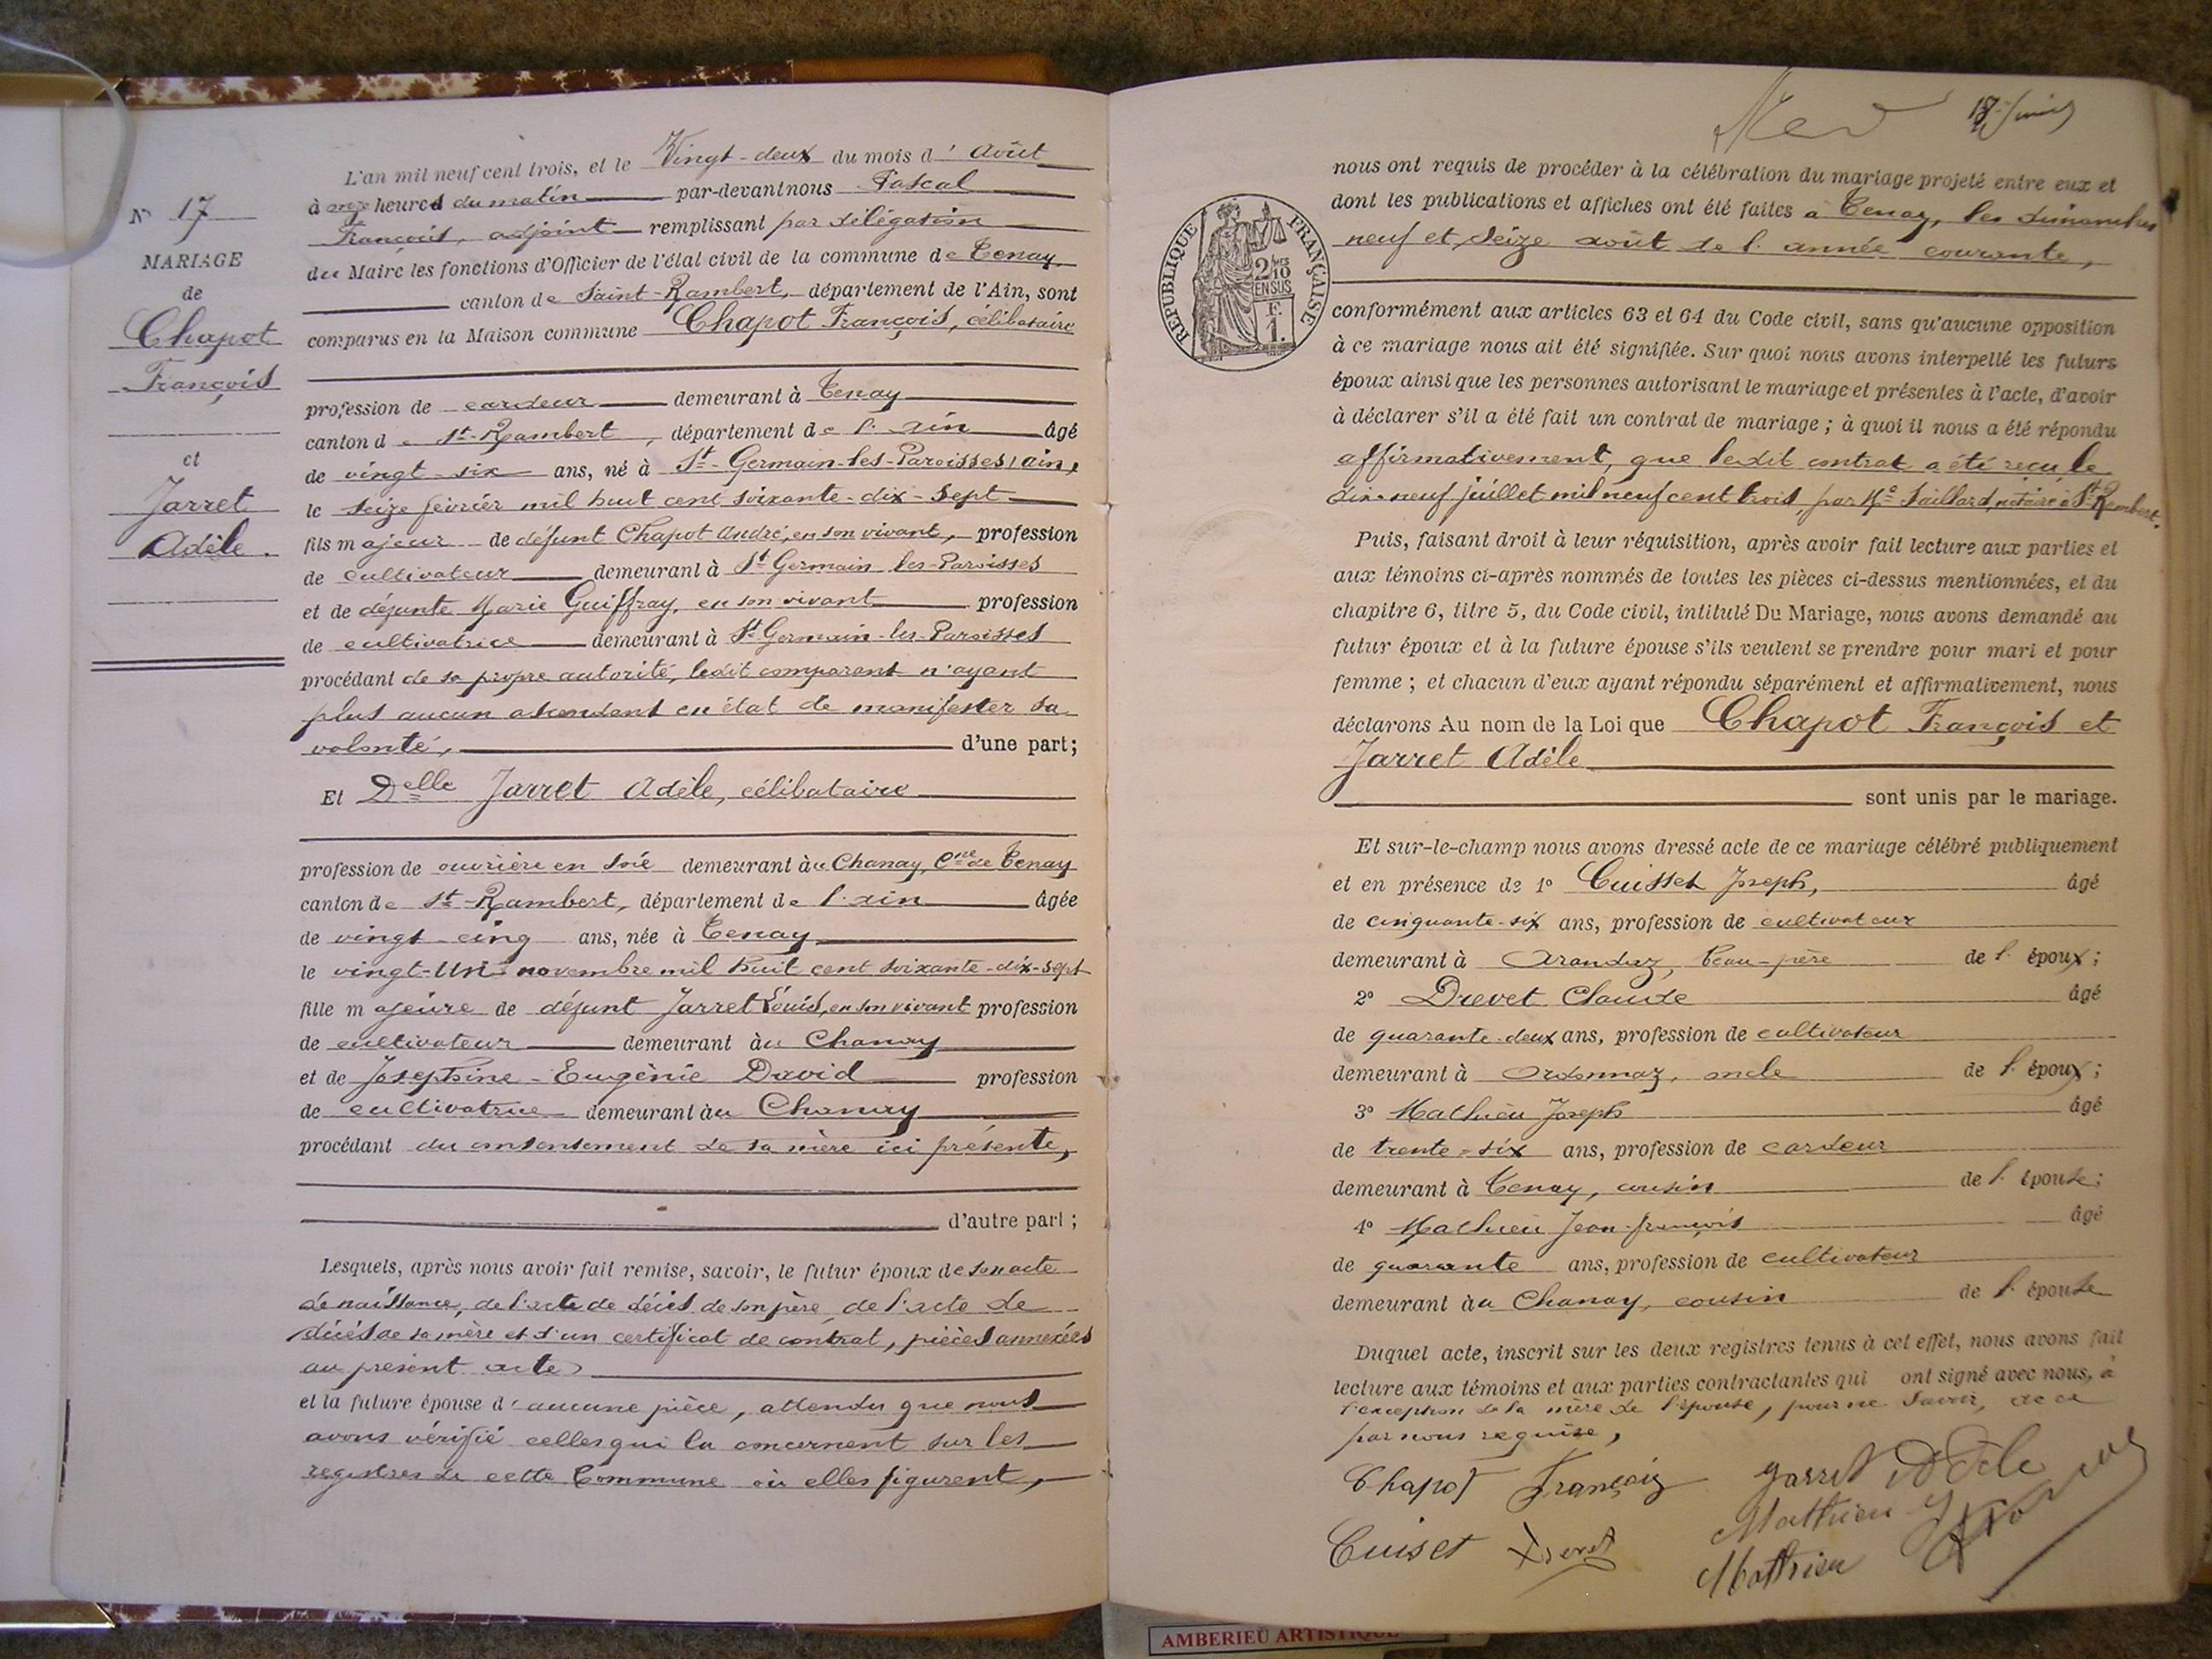 N° 17
MARIAGE
de
Chapot
François
et
Jarret
Adèle.
L'an mil neuf cent trois, et le Vingt-deux du mois d'Août
à onze heures du matin par-devant nous Pascal
François, adjoint remplissant par délégation
du Maire les fonctions d'Officier de l'état civil de la commune de Tenay,
canton de Saint-Rambert, département de l'Ain, sont
comparus en la Maison commune Chapot François, célibataire
profession de cardeur demeurant à Tenay
canton de St-Rambert, département de l'Ain âgé
de vingt-six ans, né à St-Germain-les-Paroisses (Ain),
le seize février mil huit cent soixante-dix-sept
fils majeur de défunt Chapot André, en son vivant, profession
de cultivateur demeurant à St Germain les-Paroisses
et de défunte Marie Guiffray, en son vivant profession
de cultivatrice demeurant à St Germain-les-Paroisses
procédant de sa propre autorité, ledit comparant n'ayant
plus aucun ascendant en état de manifester sa
volonté, d'une part;
Et Delle Jarret Adèle, célibataire
profession de ouvrière en soie demeurant au Chanay, Cne de Tenay
canton de St-Rambert, département de l'Ain âgée
de vingt-cinq ans, née à Tenay
le vingt-un novembre mil huit cent soixante-dix-sept
fille majeure de défunt Jarret Louis, en son vivant profession
de cultivateur demeurant au Chanay
et de Joséphine-Eugénie David profession
de cultivatrice demeurant au Chanay
procédant du consentement de sa mère ici présente,
d'autre part;
Lesquels, après nous avoir fait remise, savoir, le futur époux de son acte
de naissance, de l'acte de décès de son père, de l'acte de
décès de sa mère et d'un certificat de contrat, pièces annexées
au présent acte
et la future épouse d'aucune pièce, attendu que nous
avons vérifié celles qui la concernent sur les
registres de cette Commune où elles figurent,
nous ont requis de procéder à la célébration du mariage projeté entre eux et
dont les publications et affiches ont été faites à Tenay, les dimanches
neuf et seize août de l'année courante,
RÉPUBLIQUE FRANÇAISE
2/10 EN SUS
F. 1.
conformément aux articles 63 et 64 du Code civil, sans qu'aucune opposition
à ce mariage nous ait été signifiée. Sur quoi nous avons interpellé les futurs
époux ainsi que les personnes autorisant le mariage et présentes à l'acte, d'avoir
à déclarer s'il a été fait un contrat de mariage; à quoi il nous a été répondu
affirmativement, que ledit contrat a été reçu le
dix-neuf juillet mil neuf cent trois, par Me Saillard, notaire à St-Rambert.
Puis, faisant droit à leur réquisition, après avoir fait lecture aux parties et
aux témoins ci-après nommés de toutes les pièces ci-dessus mentionnées, et du
chapitre 6, titre 5, du Code civil, intitulé Du Mariage, nous avons demandé au
futur époux et à la future épouse s'ils veulent se prendre pour mari et pour
femme; et chacun d'eux ayant répondu séparément et affirmativement, nous
déclarons Au nom de la Loi que Chapot François et
Jarret Adèle
sont unis par le mariage.
Et sur-le-champ nous avons dressé acte de ce mariage célébré publiquement
et en présence de 1° Cuisset Joseph, âgé
de cinquante-six ans, profession de cultivateur
demeurant à Arandaz, beau-père de l'époux;
2° Drevet Claude âgé
de quarante-deux ans, profession de cultivateur
demeurant à Ordonnaz, oncle de l'époux;
3° Mathieu Joseph âgé
de trente-six ans, profession de cardeur
demeurant à Tenay, cousin de l'épouse;
4° Mathieu Jean-françois âgé
de quarante ans, profession de cultivateur
demeurant au Chanay, cousin de l'épouse
Duquel acte, inscrit sur les deux registres tenus à cet effet, nous avons fait
lecture aux témoins et aux parties contractantes qui ont signé avec nous, à
l'exception de la mère de l'épouse, pour ne savoir, de ce
par nous requise,
Chapot François Jarret Adèle
Cuiset Drevet Mathieu J
Mathieu
AMBERIEU ARTISTIQUE